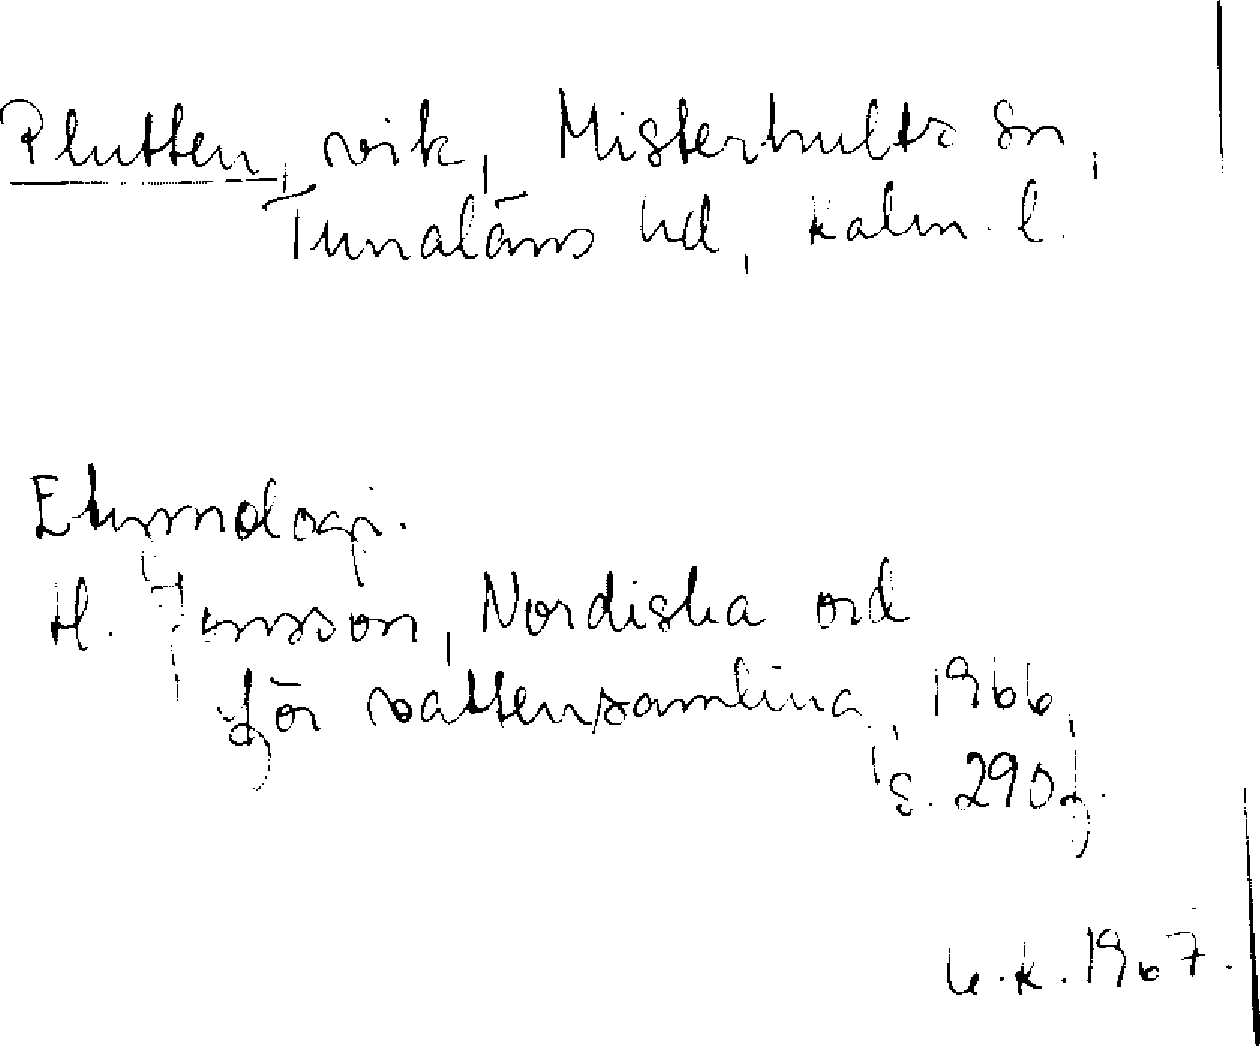 Plutten, vik, Misterhults sn,
Tunaläns hd, Kalm. l.
Etymologi.
H. Jonsson, Nordiska ord
för vattensamling, 1966,
s. 290 f.
1967.